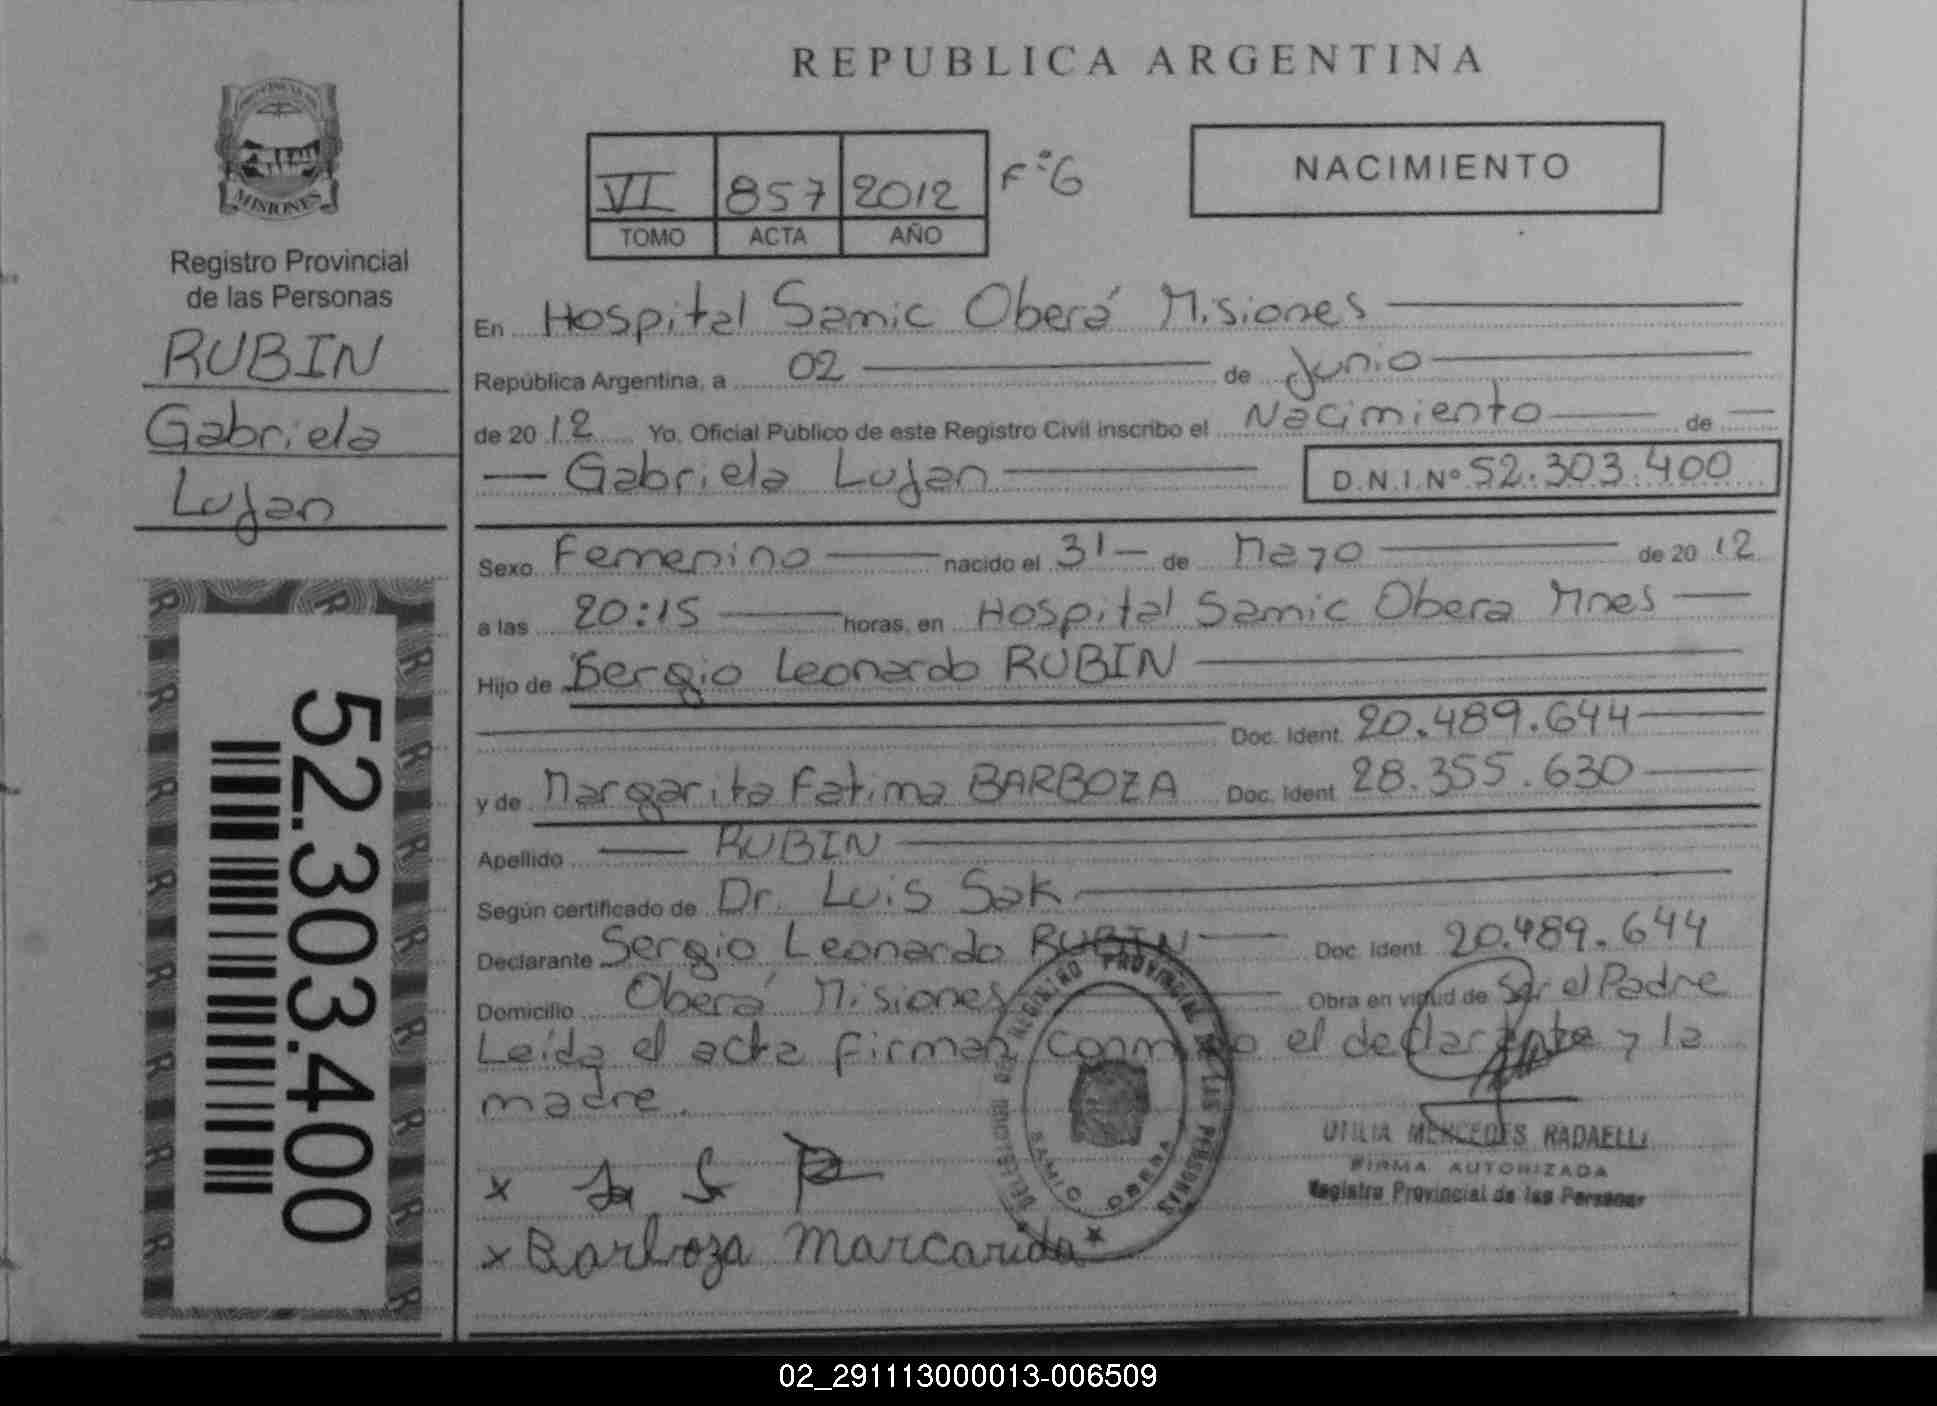 REPUBLICA ARGENTINA
MISIONES
Registro Provincial
de las Personas
RUBIN
Gabriela
Lujan
52.303.400
VI 857 2012 Fº6
TOMO ACTA AÑO
NACIMIENTO
En Hospital Samic Oberá Misiones
República Argentina, a 02 de Junio
de 2012 Yo, Oficial Público de este Registro Civil inscribo el Nacimiento de
Gabriela Lujan D.N.I. Nº 52.303.400
Sexo Femenino nacido el 31 de Mayo de 2012
a las 20:15 horas, en Hospital Samic Obera Mnes
Hijo de Sergio Leonardo RUBIN
Doc. Ident. 20.489.644
y de Margarita Fatima BARBOZA Doc. Ident. 28.355.630
Apellido RUBIN
Según certificado de Dr. Luis Sak
Declarante Sergio Leonardo RUBIN Doc. Ident. 20.489.644
Domicilio Oberá Misiones Obra en virtud de Ser el Padre
Leída el acta firman conmigo el declarante y la
madre.
REGISTRO PROVINCIAL DE LAS PERSONAS
SAMIC OBERA
MERCEDES RADAELLI
FIRMA AUTORIZADA
Registro Provincial de las Personas
x
x Barboza Marcarida
02_291113000013-006509